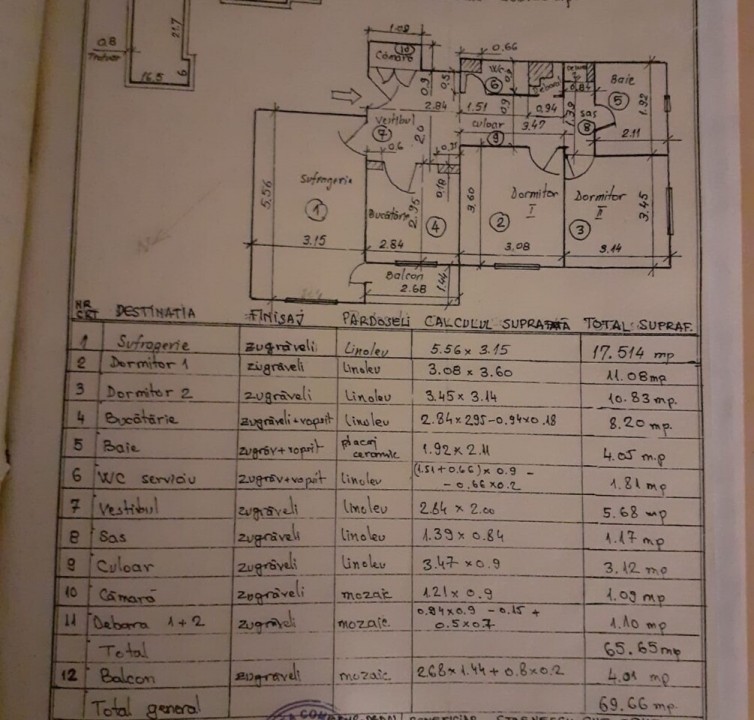 0.8
Trotuar
16.5
6
21.7
1.08
Cămară
10
0.9
0.5
0.66
WC
6
0.9
Debara
0.84
Baie
5
1.92
2.11
2.84
1.51
0.9
0.94
3.47
1.39
SAS
8
Vestibul
7
2.0
culoar
9
0.6
0.18
5.56
Sufragerie
1
3.15
Bucătărie
2.95
4
2.84
3.60
Dormitor
I
2
3.08
Dormitor
II
3
3.45
3.14
Balcon
2.68
1.44
NR CRT DESTINATIA FINISAJ PARDOSELI CALCULUL SUPRAFATĂ TOTAL SUPRAF.
1 Sufragerie zugrăveli Linoleu 5.56 x 3.15 17.514 mp
2 Dormitor 1 zugrăveli Linoleu 3.08 x 3.60 11.08 mp
3 Dormitor 2 zugrăveli Linoleu 3.45 x 3.14 10.83 mp.
4 Bucătărie zugrăveli+vopsit Linoleu 2.84 x 295 - 0.94 x 0.18 8.20 mp.
5 Baie zugrăv+vopsit placaj ceramic 1.92 x 2.11 4.05 mp
6 WC serviciu zugrăv+vopsit linoleu (1.51 + 0.66) x 0.9 - - 0.66 x 0.2 1.81 mp
7 Vestibul zugrăveli linoleu 2.84 x 2.00 5.68 mp
8 Sas zugrăveli linoleu 1.39 x 0.84 1.17 mp
9 Culoar zugrăveli linoleu 3.47 x 0.9 3.12 mp
10 Cămară zugrăveli mozaic 1.21 x 0.9 1.09 mp
11 Debara 1+2 zugrăveli mozaic 0.84 x 0.9 - 0.15 + 0.5 x 0.7 1.10 mp
Total 65.65 mp
12 Balcon zugrăveli mozaic 2.68 x 1.44 + 0.8 x 0.2 4.01 mp
Total general 69.66 mp
BENEFICIAR